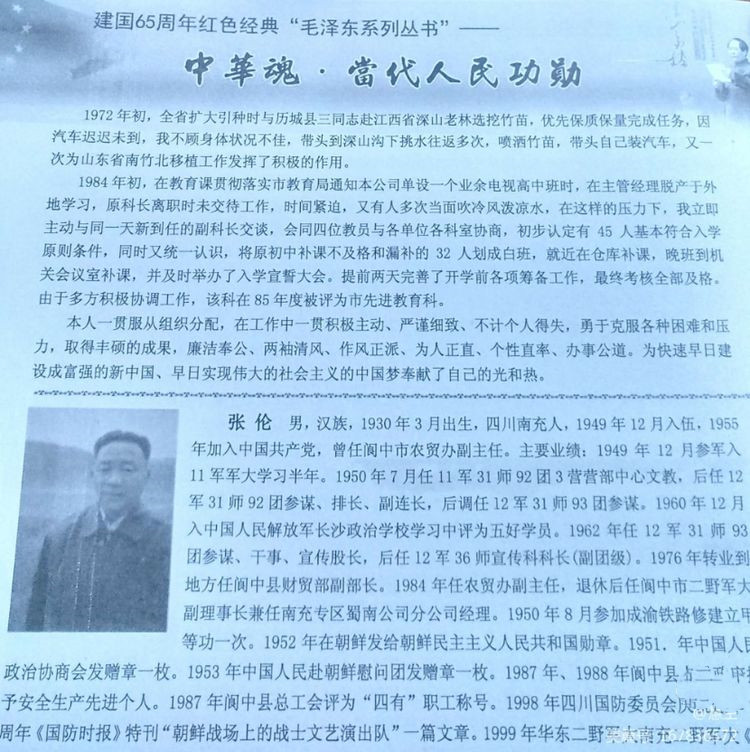 建国65周年红色经典“毛泽东系列丛书”——
中華魂·當代人民功勋
1972年初，全省扩大引种时与历城县三同志赴江西省深山老林选挖竹苗，优先保质保量完成任务，因
汽车迟迟未到，我不顾身体状况不佳，带头到深山沟下挑水往返多次，喷洒竹苗，带头自己装汽车，又一
次为山东省南竹北移植工作发挥了积极的作用。
1984年初，在教育课贯彻落实市教育局通知本公司单设一个业余电视高中班时，在主管经理脱产于外
地学习，原科长离职时未交待工作，时间紧迫，又有人多次当面吹冷风泼凉水，在这样的压力下，我立即
主动与同一天新到任的副科长交谈，会同四位教员与各单位各科室协商，初步认定有 45 人基本符合入学
原则条件，同时又统一认识，将原初中补课不及格和漏补的 32 人划成白班，就近在仓库补课，晚班到机
关会议室补课，并及时举办了入学宣誓大会。提前两天完善了开学前各项筹备工作，最终考核全部及格。
由于多方积极协调工作，该科在85年度被评为市先进教育科。
本人一贯服从组织分配，在工作中一贯积极主动、严谨细致、不计个人得失，勇于克服各种困难和压
力，取得丰硕的成果，廉洁奉公、两袖清风、作风正派、为人正直、个性直率、办事公道。为快速早日建
设成富强的新中国、早日实现伟大的社会主义的中国梦奉献了自己的光和热。
张 伦 男，汉族，1930年3月出生，四川南充人，1949年12月入伍，1955
年加入中国共产党，曾任阆中市农贸办副主任。主要业绩：1949 年 12 月参军入
11军军大学习半年。1950年7月任11军31师92团3营营部中心文教，后任12
军31师92团参谋、排长、副连长，后调任12军31师93团参谋。1960年12月
入中国人民解放军长沙政治学校学习中评为五好学员。1962 年任 12 军 31 师 93
团参谋、干事、宣传股长，后任12军36师宣传科科长(副团级)。1976年转业到
地方任阆中县财贸部副部长。1984年任农贸办副主任，退休后任阆中市二野军大
副理事长兼任南充专区蜀南公司分公司经理。1950年8月参加成渝铁路修建立甲
等功一次。1952年在朝鲜发给朝鲜民主主义人民共和国勋章。1951.年中国人民
政治协商会发赠章一枚。1953年中国人民赴朝鲜慰问团发赠章一枚。1987年、1988年阆中县
予安全生产先进个人。1987年阆中县总工会评为“四有”职工称号。1998年四川国防委员会
周年《国防时报》特刊“朝鲜战场上的战士文艺演出队”一篇文章。1999年华东二野军大南充